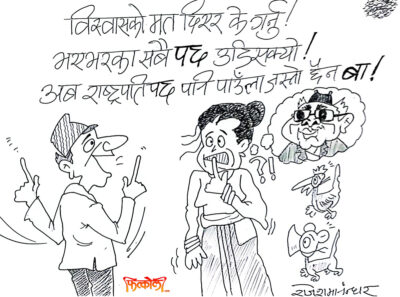 विस्वासको मत दिएर के गर्नु!
भरभरका सबै पद उडिसक्यो!
अब राष्ट्रपति पद पनि पाउँला जस्तो छैन बा!
?!
फित्कौली
राजेश मानन्धर